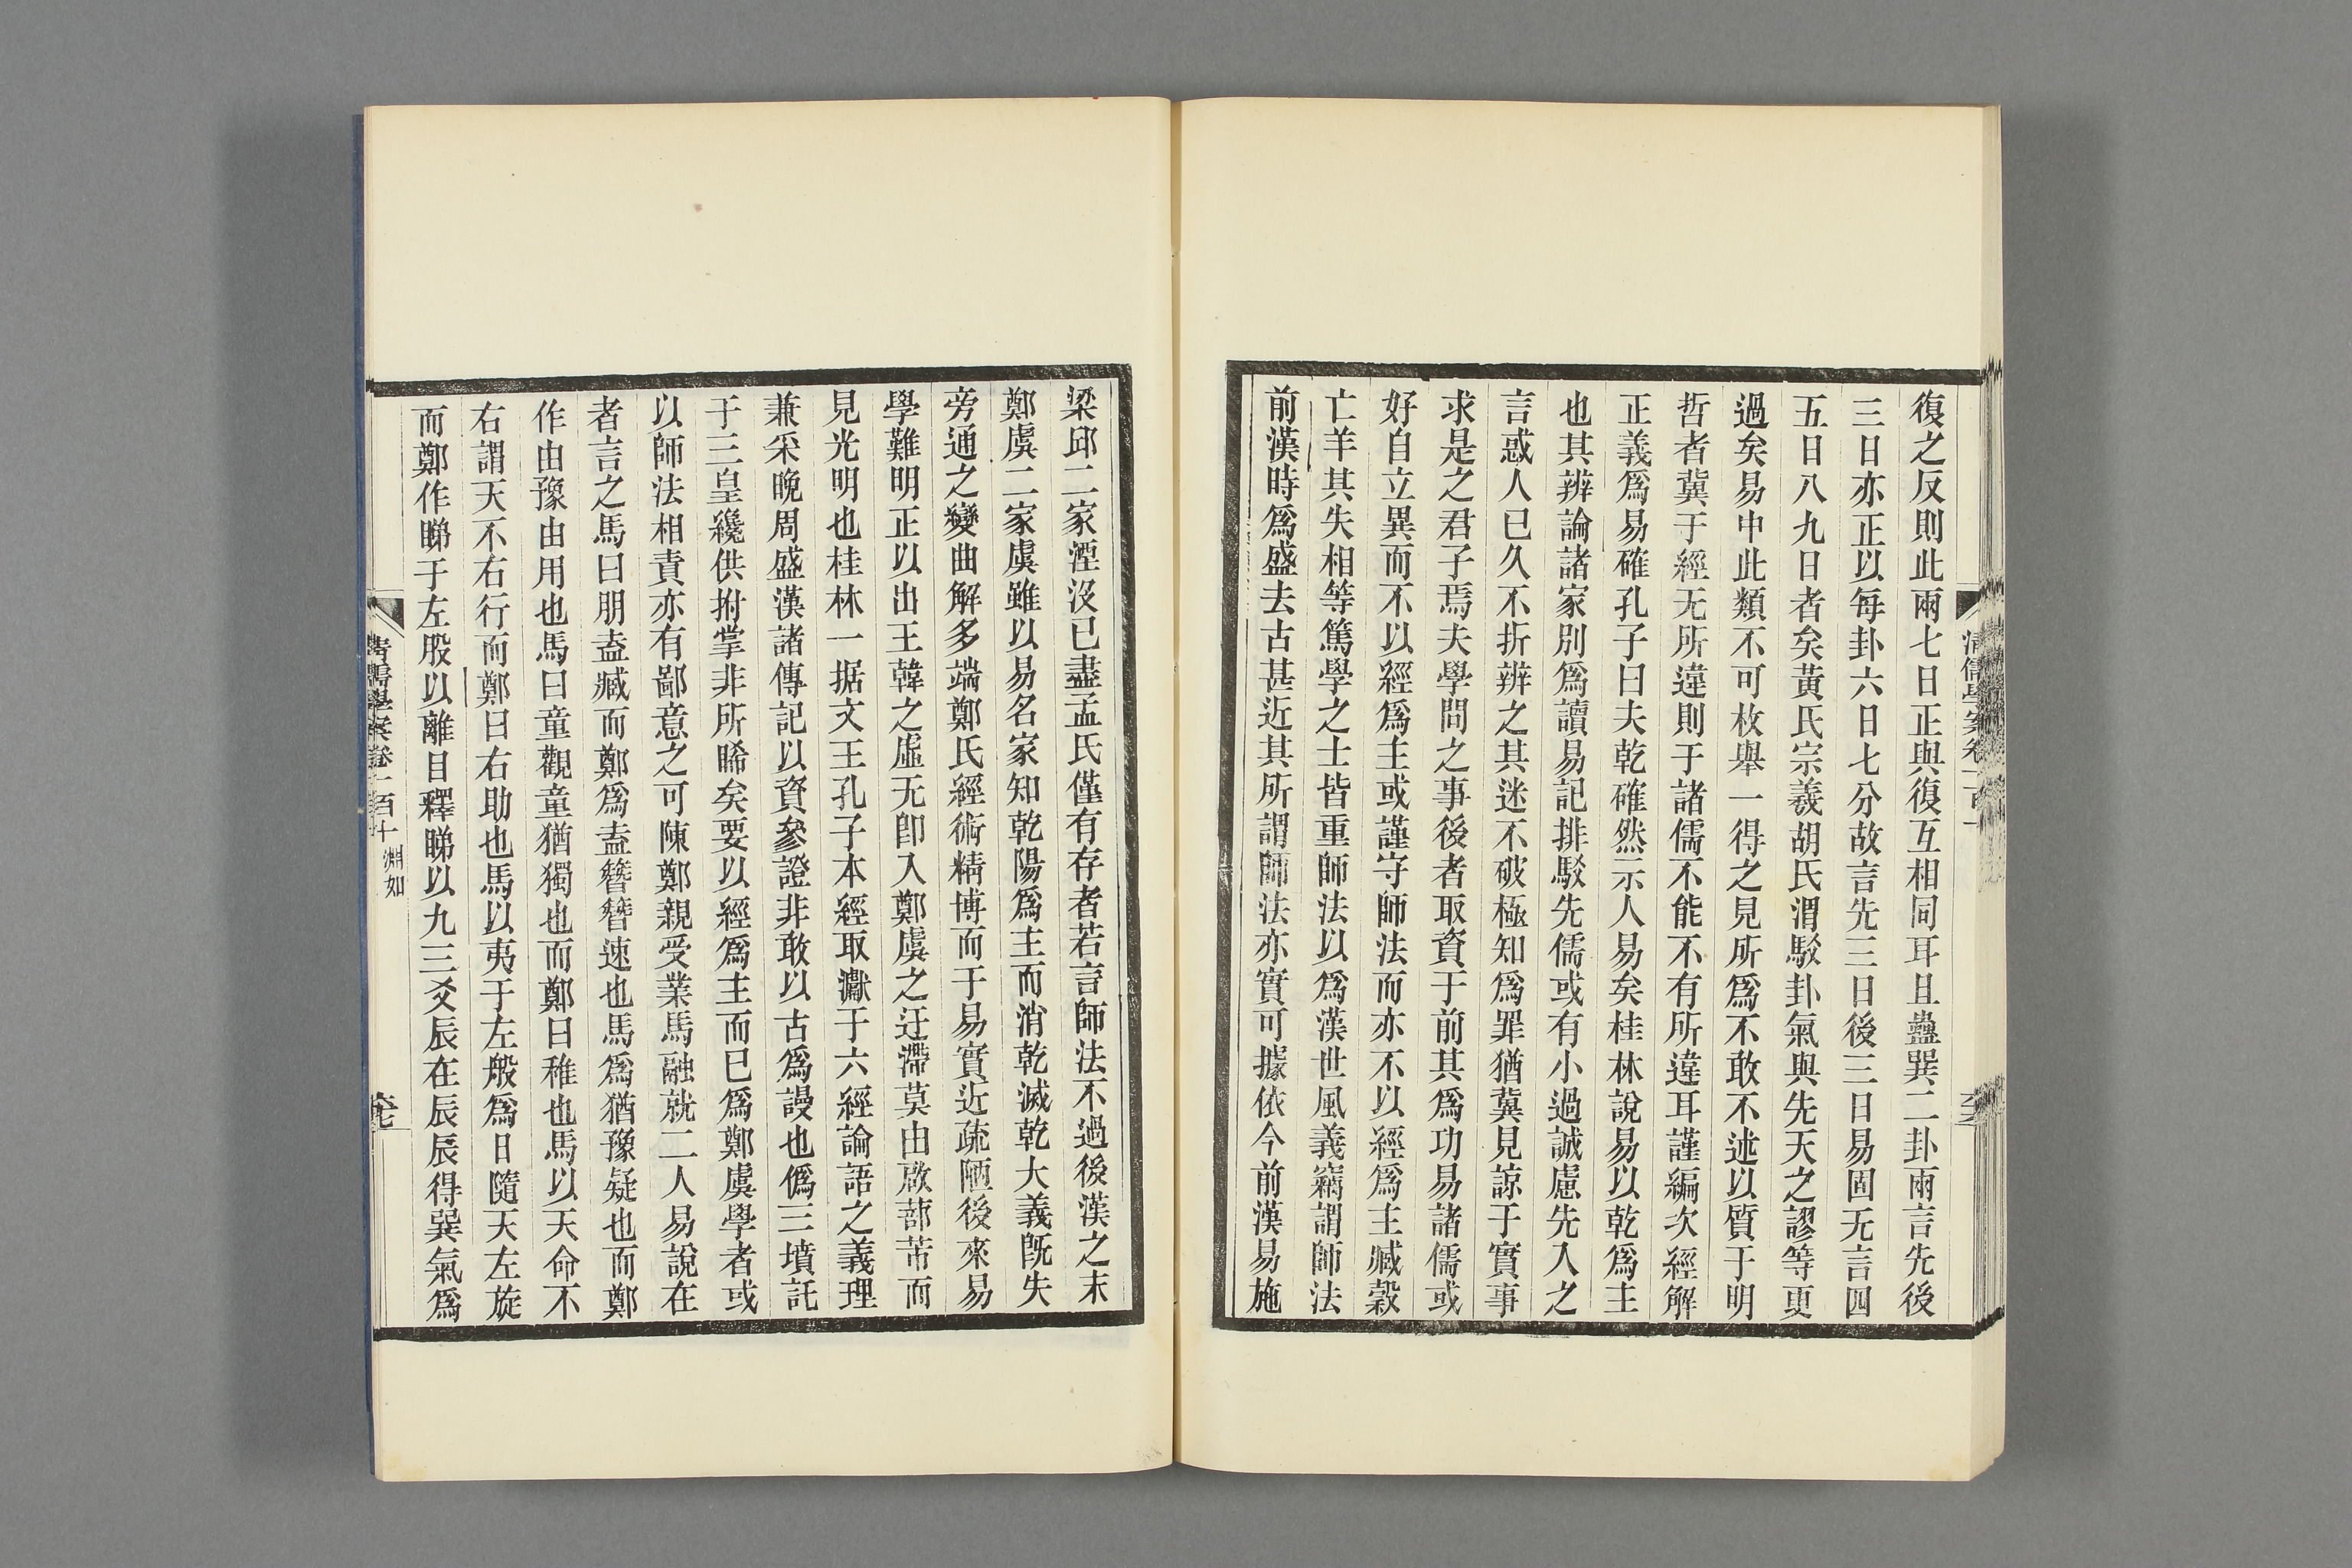 復之反則此兩七日正與復互相同耳且蠱巽二卦兩言先後
三日亦正以每卦六日七分故言先三日後三日易固无言四
五日八九日者矣黃氏宗羲胡氏渭駁卦氣與先天之謬等更
過矣易中此類不可枚舉一得之見所爲不敢不述以質于明
哲者冀于經无所違則于諸儒不能不有所違耳謹編次經解
正義爲易確孔子曰夫乾確然示人易矣桂林說易以乾爲主
也其辨論諸家別爲讀易記排駁先儒或有小過誠慮先入之
言惑人已久不折辨之其迷不破極知爲罪猶冀見諒于實事
求是之君子焉夫學問之事後者取資于前其爲功易諸儒或
好自立異而不以經爲主或謹守師法而亦不以經爲主臧穀
亡羊其失相等篤學之士皆重師法以爲漢世風義竊謂師法
前漢時爲盛去古甚近其所謂師法亦實可據依今前漢易施
梁邱二家湮沒已盡孟氏僅有存者若言師法不過後漢之末
鄭虞二家虞雖以易名家知乾陽爲主而消乾滅乾大義旣失
旁通之變曲解多端鄭氏經術精博而于易實近疏陋後來易
學難明正以出王韓之虛无卽入鄭虞之迂滯莫由啟蔀芾而
見光明也桂林一据文王孔子本經取灦于六經論語之義理
兼采晚周盛漢諸傳記以資參證非敢以古爲謾也僞三墳託
于三皇纔供拊掌非所睎矣要以經爲主而已爲鄭虞學者或
以師法相責亦有鄙意之可陳鄭親受業馬融就二人易說在
者言之馬曰朋盍臧而鄭爲盍簪簪速也馬爲猶豫疑也而鄭
作由豫由用也馬曰童觀童猶獨也而鄭曰稚也馬以天命不
右謂天不右行而鄭曰右助也馬以夷于左般爲日隨天左旋
而鄭作睇于左股以離目釋睇以九三爻辰在辰辰得巽氣爲
清儒學案卷一百十 淵如
六七